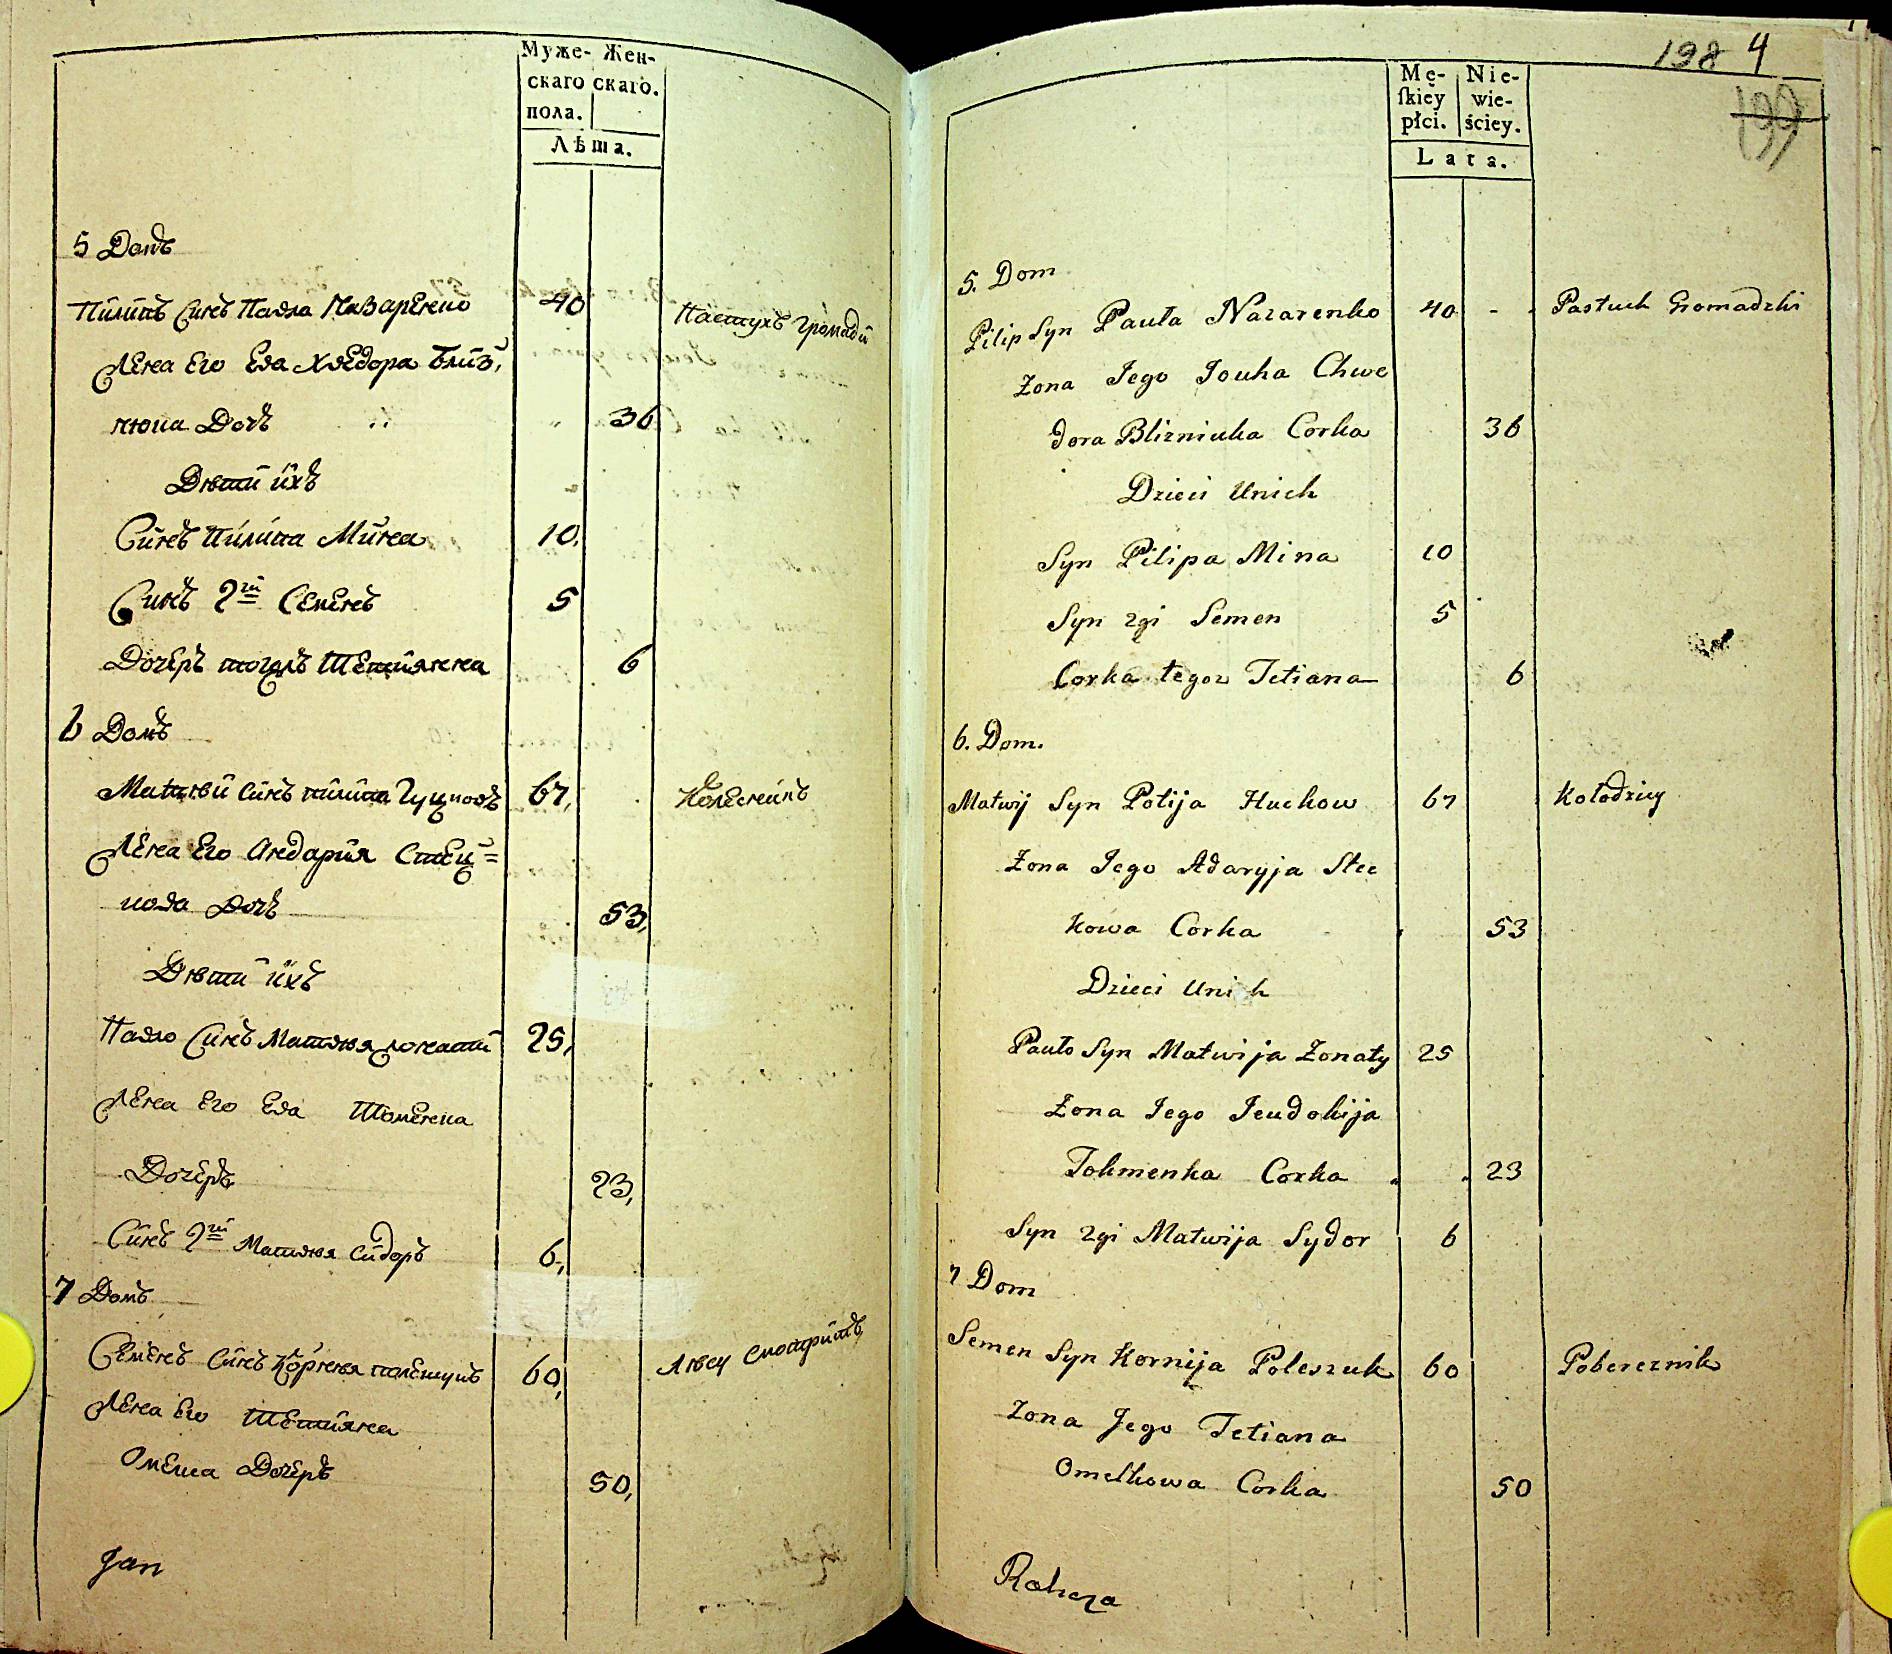 Муже- Жен-
скаго скаго.
пола.
Лѣта.
5 Домъ
Пилипъ Синъ Павла Назаренко 40 Пастухъ громадзй
Жена Его Ева Хведора Близ,
нюка Дочъ 36
Дѣти ихъ
Синъ Пилипа Мина 10,
Синъ 2й Семенъ 5
Дочеръ тогожъ Тетияна 6
6 Домъ
Матвѣй Синъ 67, Колесникъ
Жена Его Андария Стец=
кова Дочъ 53,
Дѣти ихъ
Павло Синъ Матвѣя жонатий 25,
Жена Его Ева
Дочеръ 23,
Синъ 2й Матвѣя Сидоръ 6,
7 Домъ
Семенъ Синъ Корнѣя полещукъ 60, лѣсу смотритъ
Жена Его Тетияна
Дочеръ 50,
Jan
198 4
199
Mę- Nie-
ſkiey wie-
płci. ściey.
Lata.
5. Dom
Pilip Syn Pauła Nazarenko 40 - Pastuch Gromadzki
Zona Jego Jouha Chwe
dora Blizniuka Corka 36
Dzieci Unich
Syn Pilipa Mina 10
Syn 2gi Semen 5
Corka tegoz Tetiana 6
6. Dom.
Matwij Syn Potija Huckow 67 Kołodziey
Zona Jego Adaryja Stec
kowa Corka 53
Dzieci Unich
Pauło Syn Matwija Zonaty 25
Zona Jego Jeudokija
Tokmenka Corka 23
Syn 2gi Matwija Sydor 6
7 Dom
Semen Syn Kornija Poleszuk 60 Pobereznik
Zona Jego Tetiana
Omelkowa Corka 50